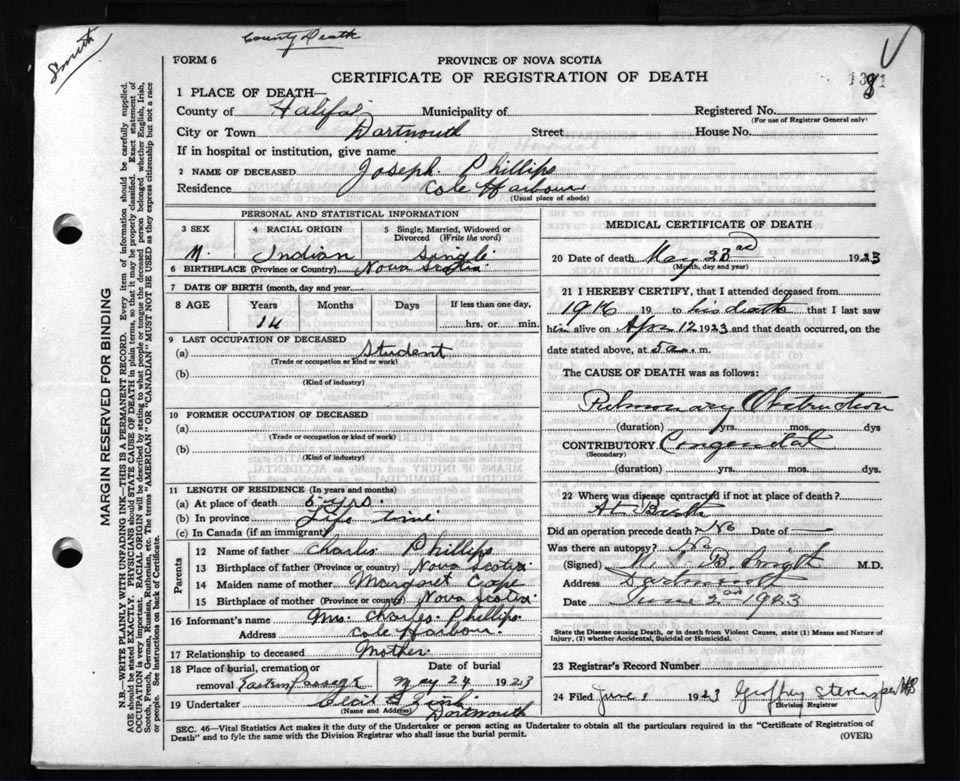 Smith
County Death
FORM 6
PROVINCE OF NOVA SCOTIA
CERTIFICATE OF REGISTRATION OF DEATH
1 PLACE OF DEATH—
County of Halifax Municipality of Registered No.
(For use of Registrar General only)
City or Town Dartmouth Street House No.
If in hospital or institution, give name
2 NAME OF DECEASED Joseph Phillips
Residence Cole Harbour
(Usual place of abode)
PERSONAL AND STATISTICAL INFORMATION
3 SEX 4 RACIAL ORIGIN 5 Single, Married, Widowed or Divorced (Write the word)
M. Indian Single
6 BIRTHPLACE (Province or Country) Nova Scotia
7 DATE OF BIRTH (month, day and year)
8 AGE Years Months Days If less than one day,
14 hrs. or min.
9 LAST OCCUPATION OF DECEASED
(a) Student
(Trade or occupation or kind or work)
(b)
(Kind of industry)
10 FORMER OCCUPATION OF DECEASED
(a)
(Trade or occupation or kind of work)
(b)
(Kind of industry)
11 LENGTH OF RESIDENCE (In years and months)
(a) At place of death 6 yrs.
(b) In province Life time
(c) In Canada (if an immigrant)
Parents
12 Name of father Charles Phillips
13 Birthplace of father (Province or country) Nova Scotia
14 Maiden name of mother Margaret Cope
15 Birthplace of mother (Province or country) Nova Scotia
16 Informant's name Mrs. Charles Phillips
Address Cole Harbour.
17 Relationship to deceased Mother.
18 Place of burial, cremation or Date of burial
removal Eastern Passage May 24 1923
19 Undertaker Cecil E
(Name and Address) Dartmouth
MEDICAL CERTIFICATE OF DEATH
20 Date of death May 23rd 1923
(Month, day and year)
21 I HEREBY CERTIFY, that I attended deceased from
1916 19 to his death that I last saw
him alive on Apr 12 1923 and that death occurred, on the
date stated above, at 5 a. m.
The CAUSE OF DEATH was as follows:
Pulmonary Obstruction
(duration) yrs. mos. dys
CONTRIBUTORY Congenital
(Secondary)
(duration) yrs. mos. dys.
22 Where was disease contracted if not at place of death?
At Birth
Did an operation precede death? No Date of
Was there an autopsy? No
(Signed) M.D.
Address Dartmouth
Date June 2nd 1923
State the Disease causing Death, or in death from Violent Causes, state (1) Means and Nature of
Injury, (2) whether Accidental, Suicidal or Homicidal.
23 Registrar's Record Number
24 Filed June 1 1923 Geoffrey Stevens
Division Registrar
SEC. 46—Vital Statistics Act makes it the duty of the Undertaker or person acting as Undertaker to obtain all the particulars required in the "Certificate of Registration of
Death" and to fyle the same with the Division Registrar who shall issue the burial permit. (OVER)
MARGIN RESERVED FOR BINDING
N.B.—WRITE PLAINLY WITH UNFADING INK—THIS IS A PERMANENT RECORD. Every item of information should be carefully supplied.
AGE should be stated EXACTLY. PHYSICIANS should STATE CAUSE OF DEATH in plain terms, so that it may be properly classified. Exact statement of
OCCUPATION is very important. RACIAL ORIGIN will be described by stating to what people or tongue the deceased person belonged whether English, Irish,
Scotch, French, German, Russian, Ruthenian, etc. The terms "AMERICAN" OR "CANADIAN" MUST NOT BE USED as they express citizenship but not a race
or people. See instructions on back of Certificate.